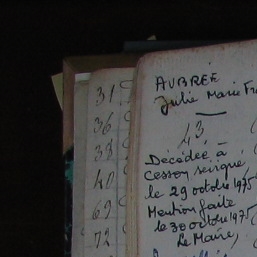 31
36
38
40
69
72
AUBRÉE
Julie Marie Fr
43
Décédée à
Cesson Sévigné
le 29 octobre 1975
Mention faite
le 30 octobre 1975
Le Maire,